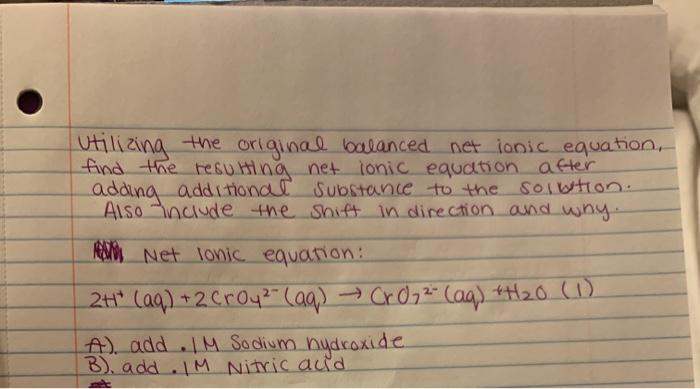 Utilizing the original balanced net ionic equation,
find the resulting net ionic equation after
adding additional substance to the solution.
Also include the shift in direction and why.
Net ionic equation:
2H⁺ (aq) + 2CrO₄²⁻ (aq) → CrO₇²⁻ (aq) + H₂O (l)
A). add .1M Sodium hydroxide
B). add .1M Nitric acid